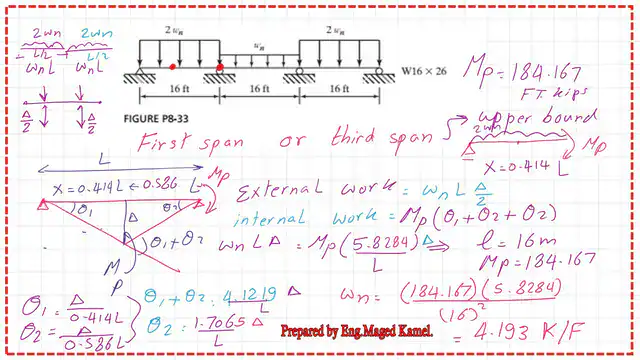 2wn 2wn
L/2 L/2
wnL wnL
Δ/2 Δ/2
2 wn wn 2 wn
W16 × 26
16 ft 16 ft 16 ft
FIGURE P8-33
Mp = 184.167
FT. kips
First span or third span
upper bound
2wn
Mp
X = 0.414 L
L
X = 0.414L 0.586 L
Mp
θ1 θ2
Δ
θ1 + θ2
Mp
External work = wn L Δ/2
internal work = Mp (θ1 + θ2 + θ2)
wn L Δ = Mp (5.8284/L) Δ ⇒ l = 16m
Mp = 184.167
θ1 = Δ/0.414L
θ2 = Δ/0.586L
θ1 + θ2 = 4.1219/L Δ
θ2 = 1.7065/L Δ
wn = (184.167)(5.8284)/(16)²
= 4.193 K/F
Prepared by Eng.Maged Kamel.